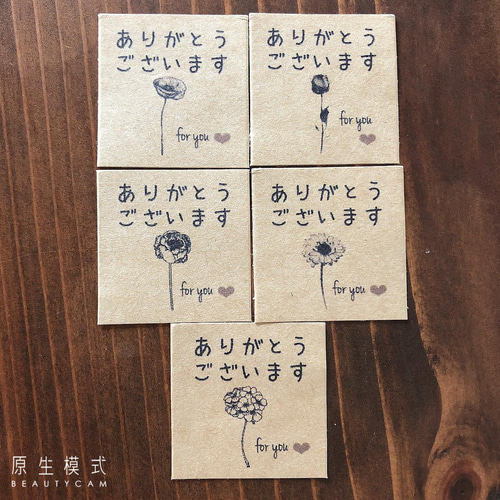 ありがとう
ございます
for you
ありがとう
ございます
for you
ありがとう
ございます
for you
ありがとう
ございます
for you
ありがとう
ございます
for you
原生模式
BEAUTYCAM